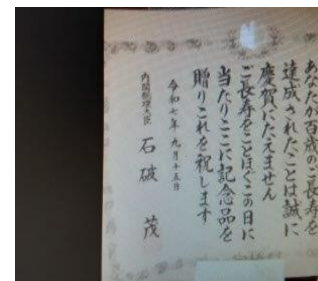 あなたが百歳のご長寿を
達成されたことは誠に
慶賀にたえません
ご長寿をことほぐこの日に
当たりここに記念品を
贈りこれを祝します
令和七年 九月十五日
内閣総理大臣 石破 茂